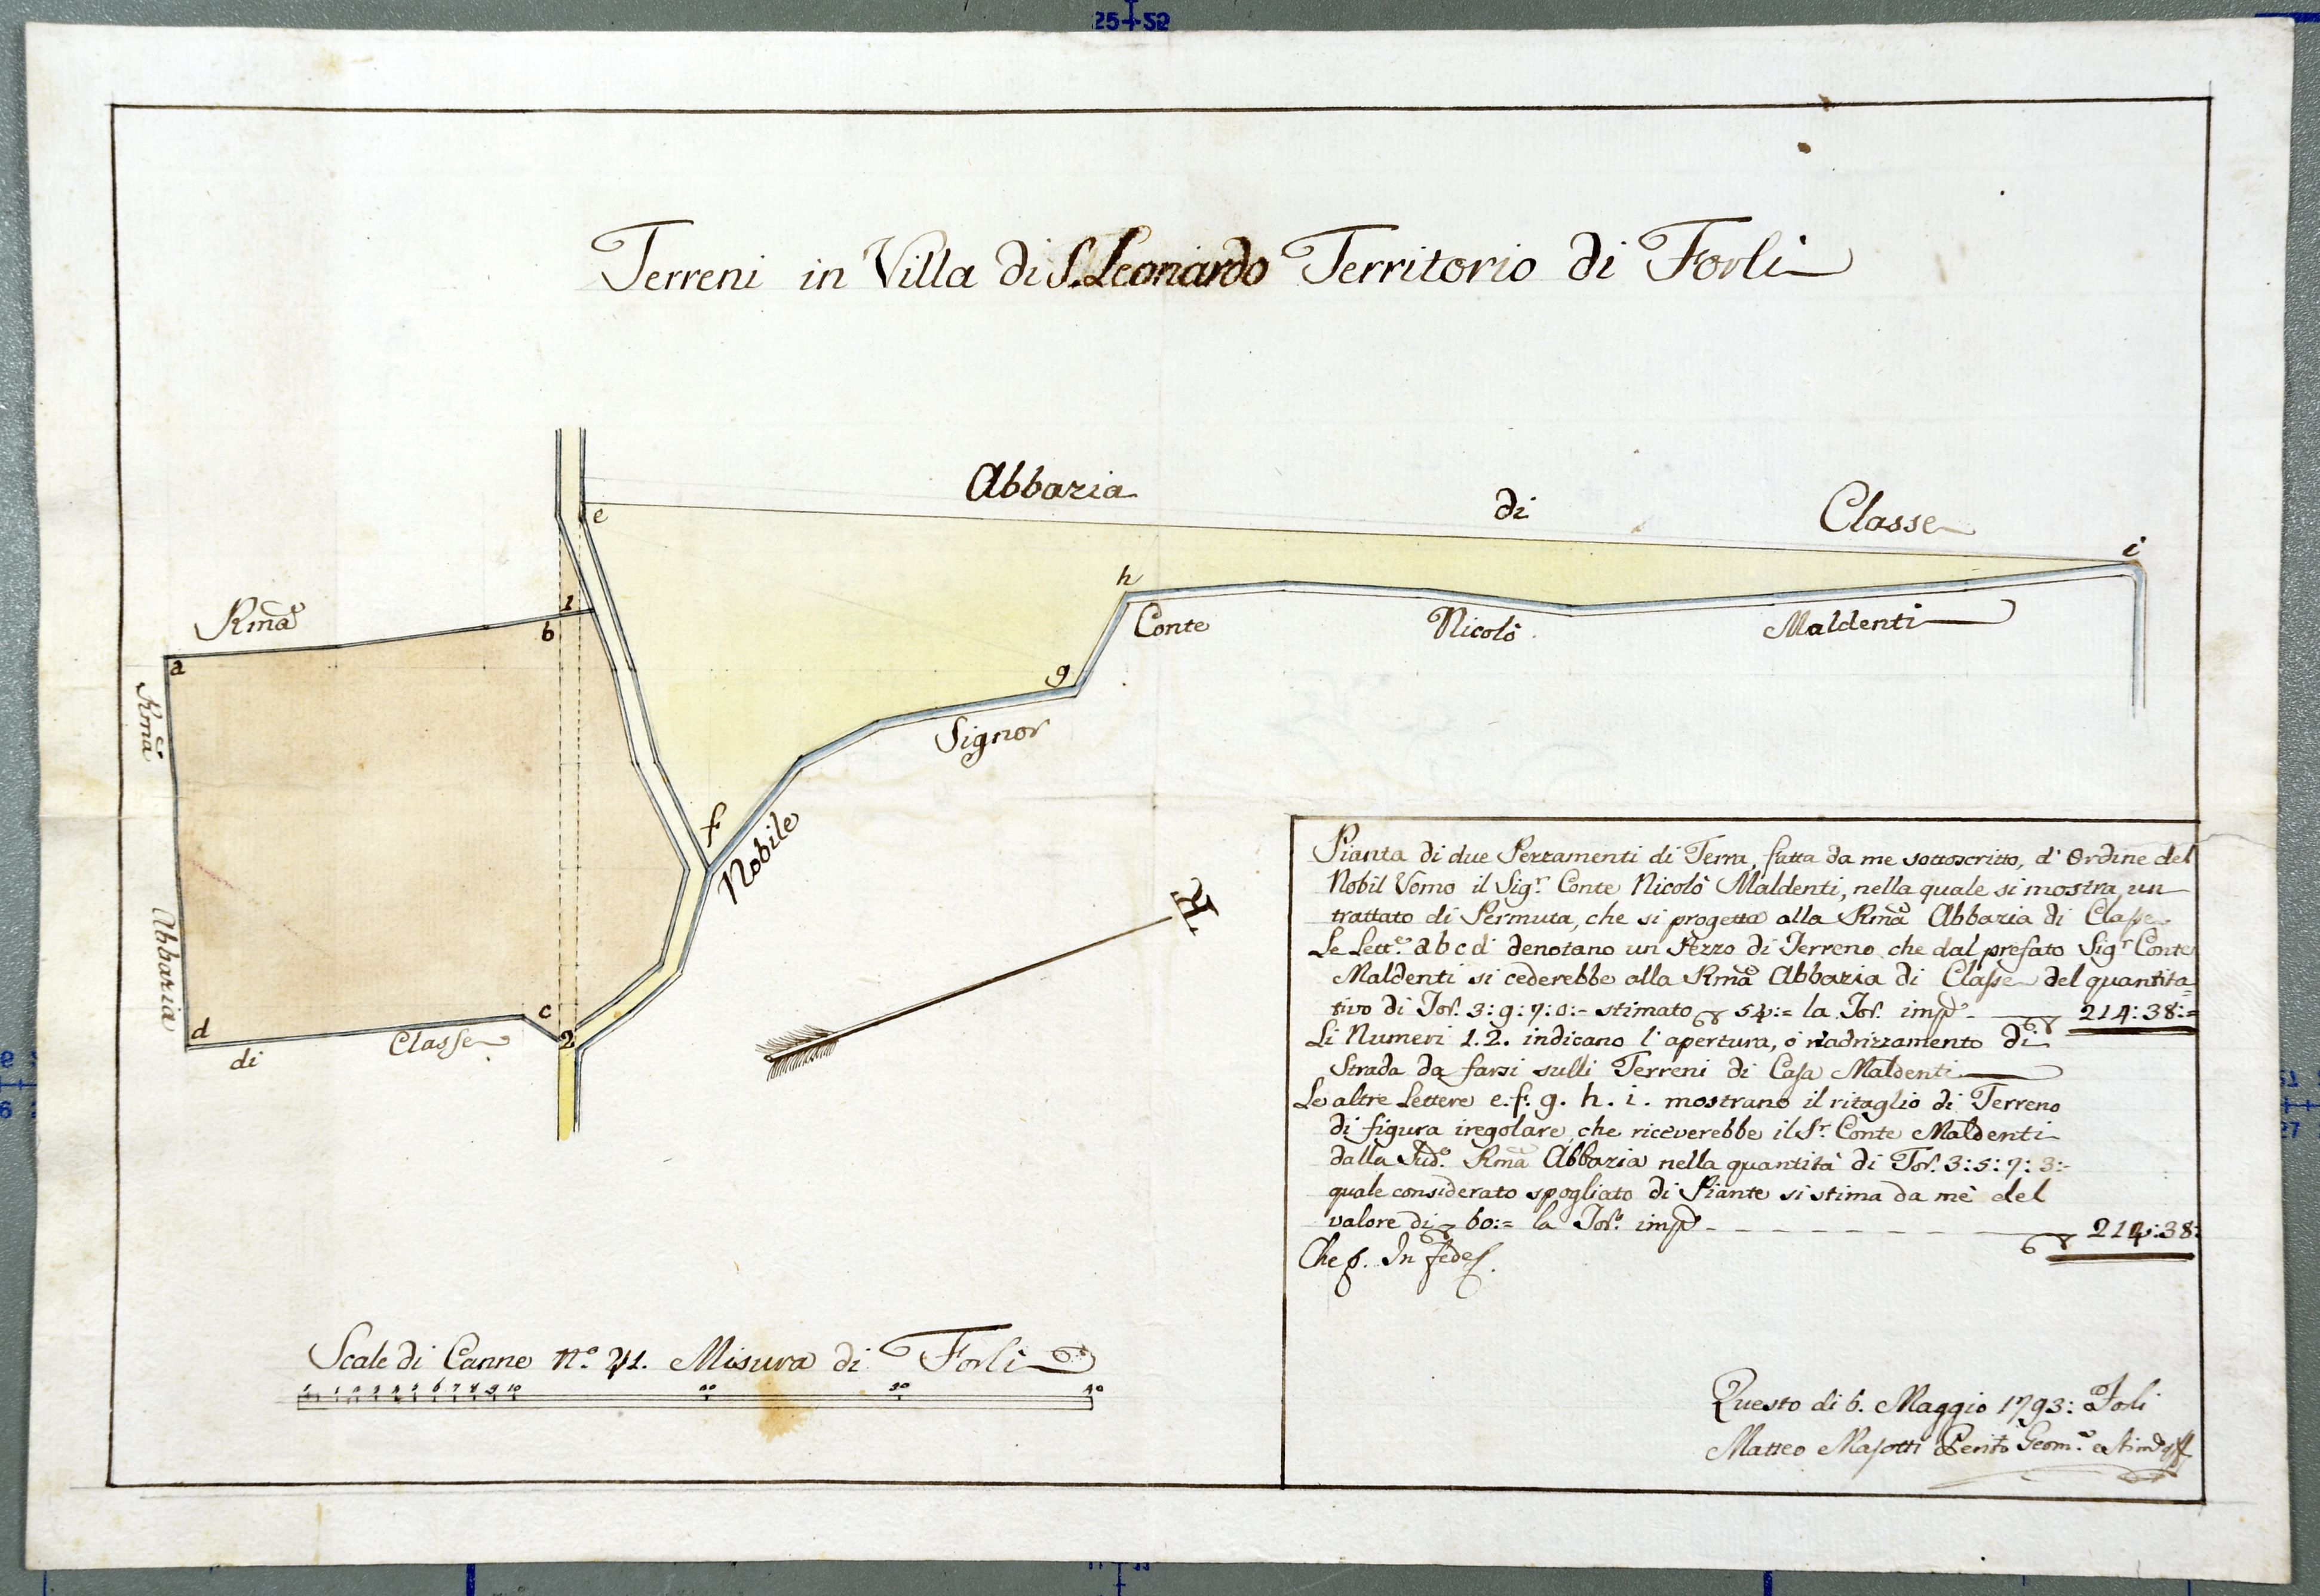 25 52
Terreni in Villa di S. Leonardo Territorio di Forlì
Abbazia di Classe
e
i
h
Rmã
1
b
Conte Nicolò Maldenti
a
g
Rmã
Signor
f
Nobile
Abbazia
R
c
d
2
di Classe
Pianta di due Pezzamenti di Terra, fatta da me sottoscritto, d' Ordine del
Nobil Uomo il Sigr. Conte Nicolò Maldenti, nella quale si mostra un
trattato di Permuta, che si progetta alla Rmã Abbazia di Classe
Le Lette. a b c d denotano un Pezzo di Terreno che dal prefato Sigr Conte
Maldenti si cederebbe alla Rmã Abbazia di Classe del quantita=
tivo di Tor. 3:9:7:0:- stimato 54:= la Tor. 214:38:=
Li Numeri 1.2. indicano l'apertura, ò riadrizzamento di
Strada da farsi sulli Terreni di Casa Maldenti
Le altre Lettere e. f. g. h. i. mostrano il ritaglio di Terreno
di figura iregolare, che riceverebbe il Sr. Conte Maldenti
dalla Sudª. Rmã Abbazia nella quantità di Tor. 3:5:7:3:-
quale considerato spogliato di Piante si stima da mè del
valore di 60:= la Tor. 214:38:
Che In fede
Scale di Canne N.º 41. Misura di Forlì
1 2 3 4 5 6 7 8 9 10 20 30 40
Questo dì 6. Maggio 1793: Forlì
Matteo Masotti Perito Geom.